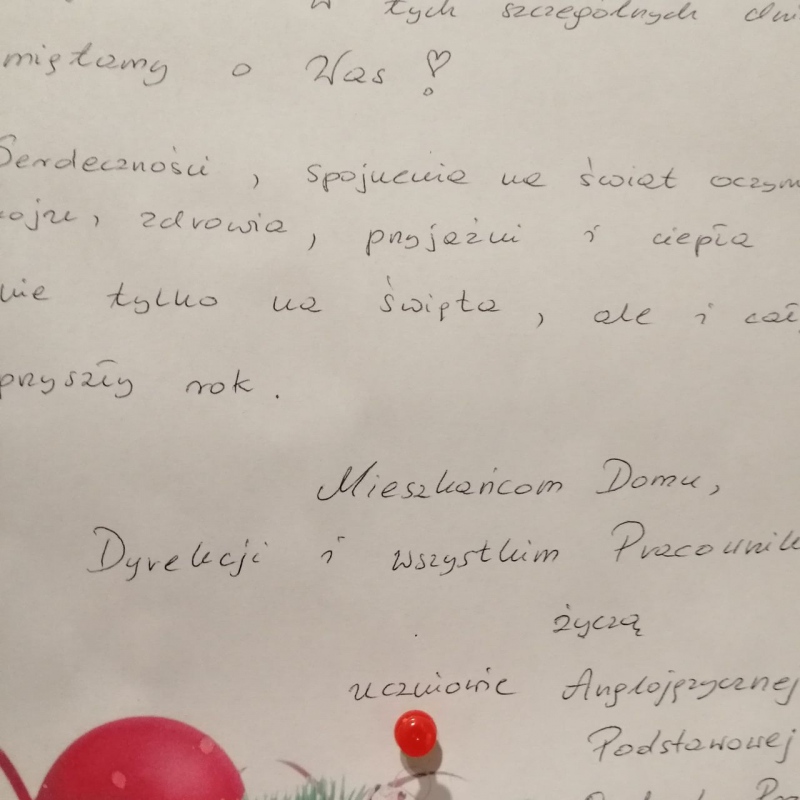 W tych szczególnych dni
miętamy o Was!
Serdeczności, spojrzenia na świat oczym
koju, zdrowia, przyjaźni i ciepła
nie tylko na święta, ale i cał
przyszły rok.
Mieszkańcom Domu,
Dyrekcji i wszystkim Pracownik
życzą
uczniowie Anglojęzycznej
Podstawowej